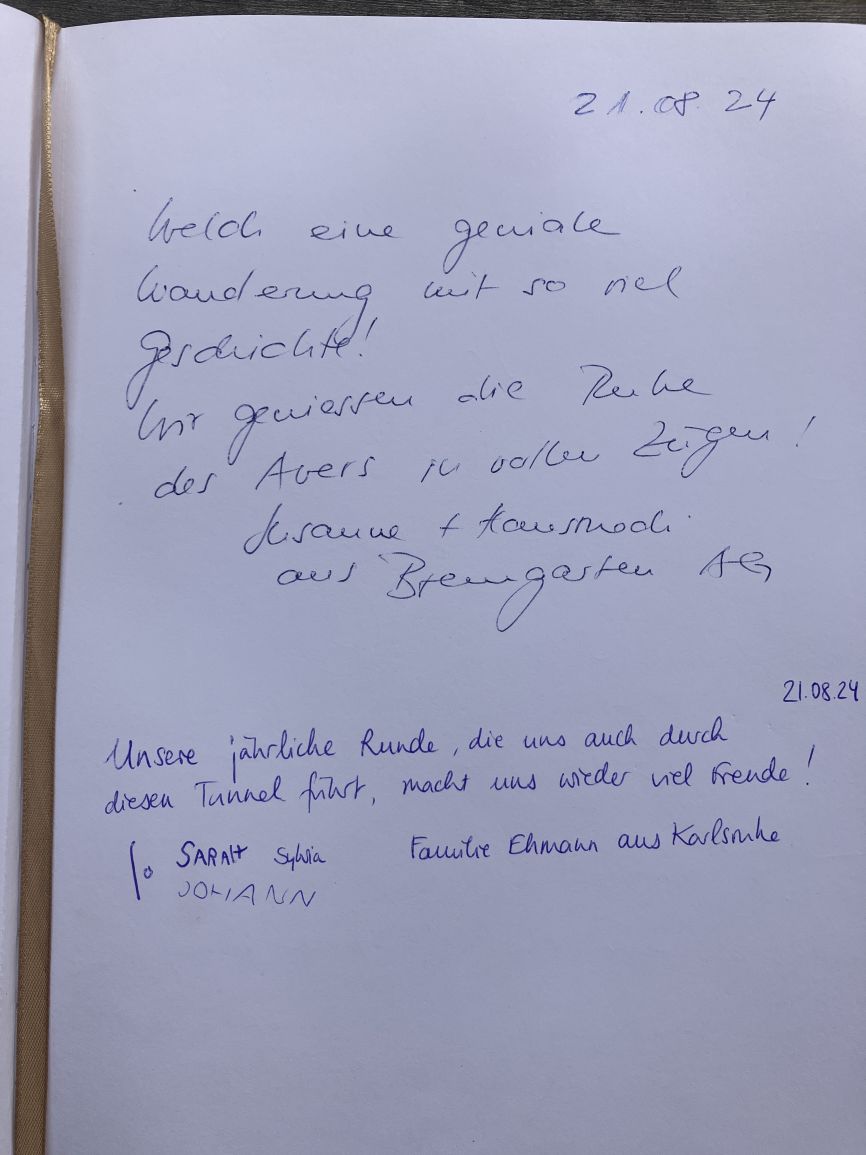 21.08.24
Welch eine geniale
Wanderung mit so viel
Geschichte!
Wir geniessen die Ruhe
des Avers in vollen Zügen!
Susanne +
aus Bremgarten AG
21.08.24
Unsere jährliche Runde, die uns auch durch
diesen Tunnel führt, macht uns wieder viel Freude!
SARAH Sylvia Familie Ehmann aus Karlsruhe
JOHANN